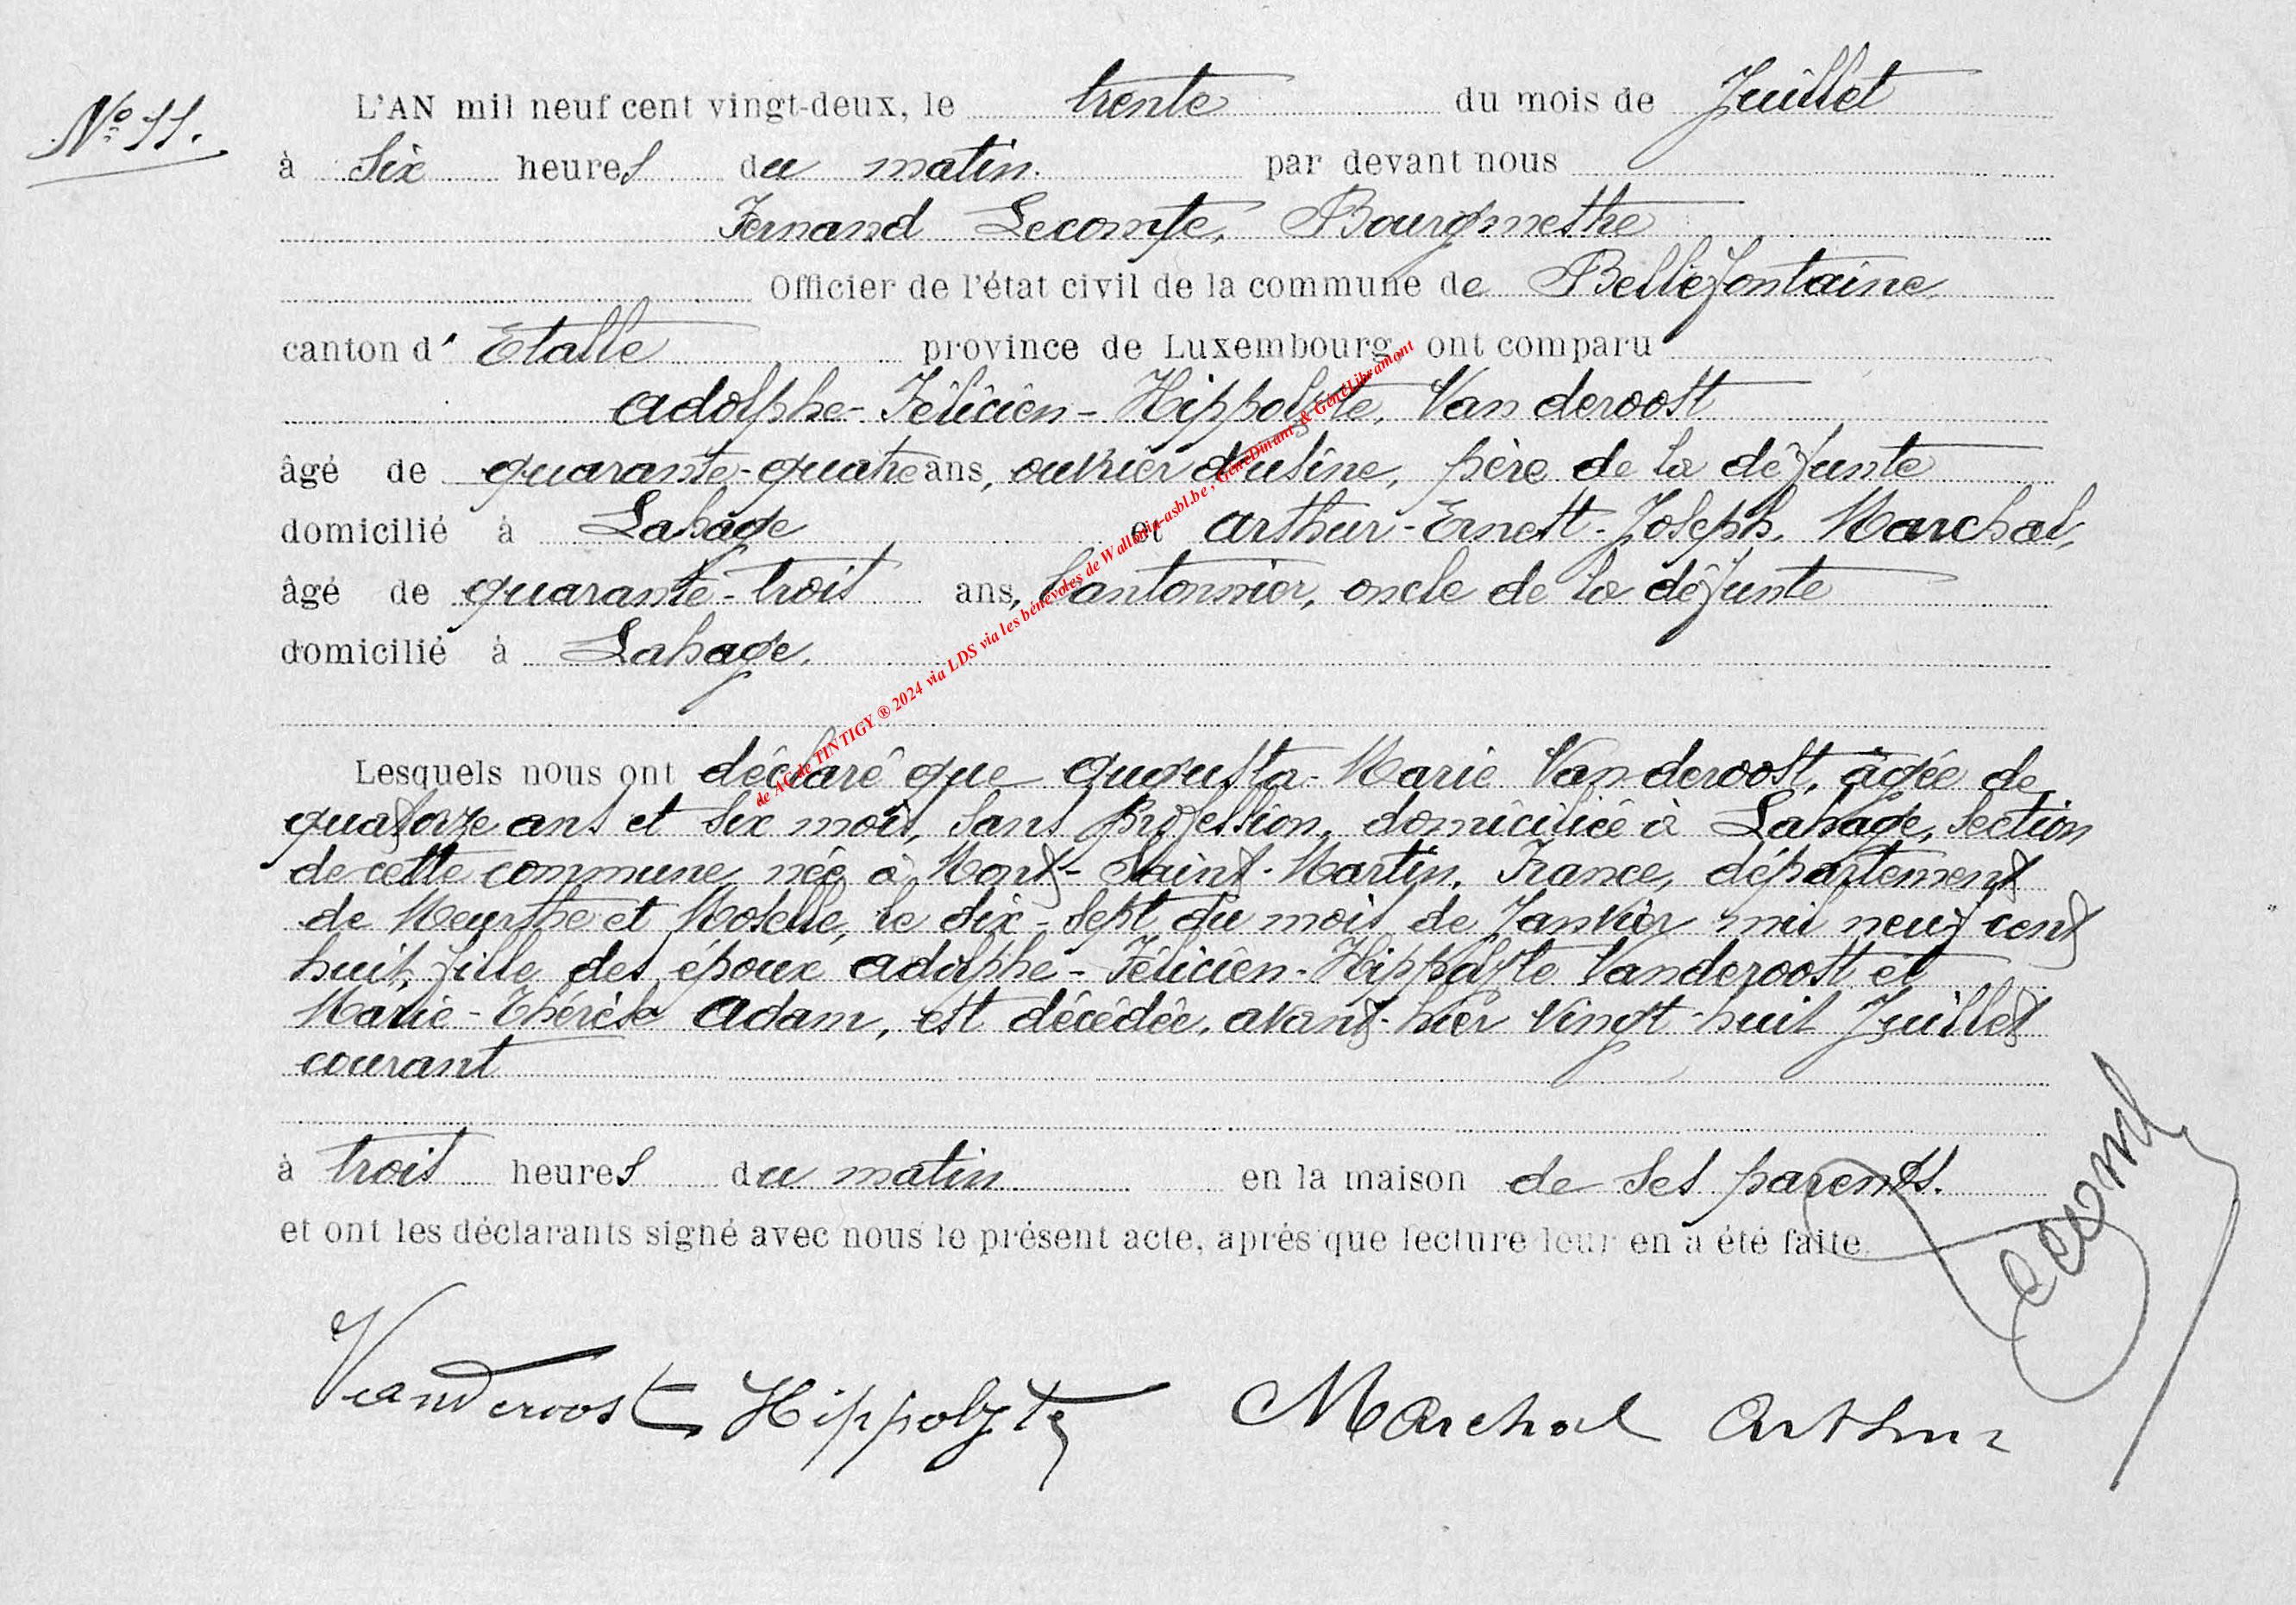 N° 11.
L'AN mil neuf cent vingt-deux, le trente du mois de Juillet
à six heures du matin. par devant nous
Fernand Lecomte, Bourgmestre
Officier de l'état civil de la commune de Bellefontaine
canton d' Etalle province de Luxembourg, ont comparu
Adolphe-Félicien-Hippolyte, Vanderoost
âgé de quarante-quatre ans, ouvrier d'usine, père de la défunte
domicilié à Lahage et Arthur-Ernest-Joseph, Marchal,
âgé de quarante-trois ans, Cantonnier, oncle de la défunte
domicilié à Lahage.
Lesquels nous ont déclaré que Augusta-Marie Vanderoost, âgée de
quatorze ans et six mois, sans profession, domiciliée à Lahage, section
de cette commune, née à Mont-Saint-Martin, France, département
de Meurthe et Moselle, le dix-sept du mois de Janvier mil neuf cent
huit, fille des époux Adolphe-Félicien-Hippolyte Vanderoost et
Marie-Thérèse Adam, est décédée, avant-hier vingt-huit Juillet
courant
à trois heures du matin en la maison de ses parents.
et ont les déclarants signé avec nous le présent acte, après que lecture leur en a été faite.
Vanderoost Hippolyte Marchal Arthur
Lecomte
de AC de TINTIGY ® 2024 via LDS via les bénévoles de Wallonia-asbl.be, GénéDinant & GénéLibramont